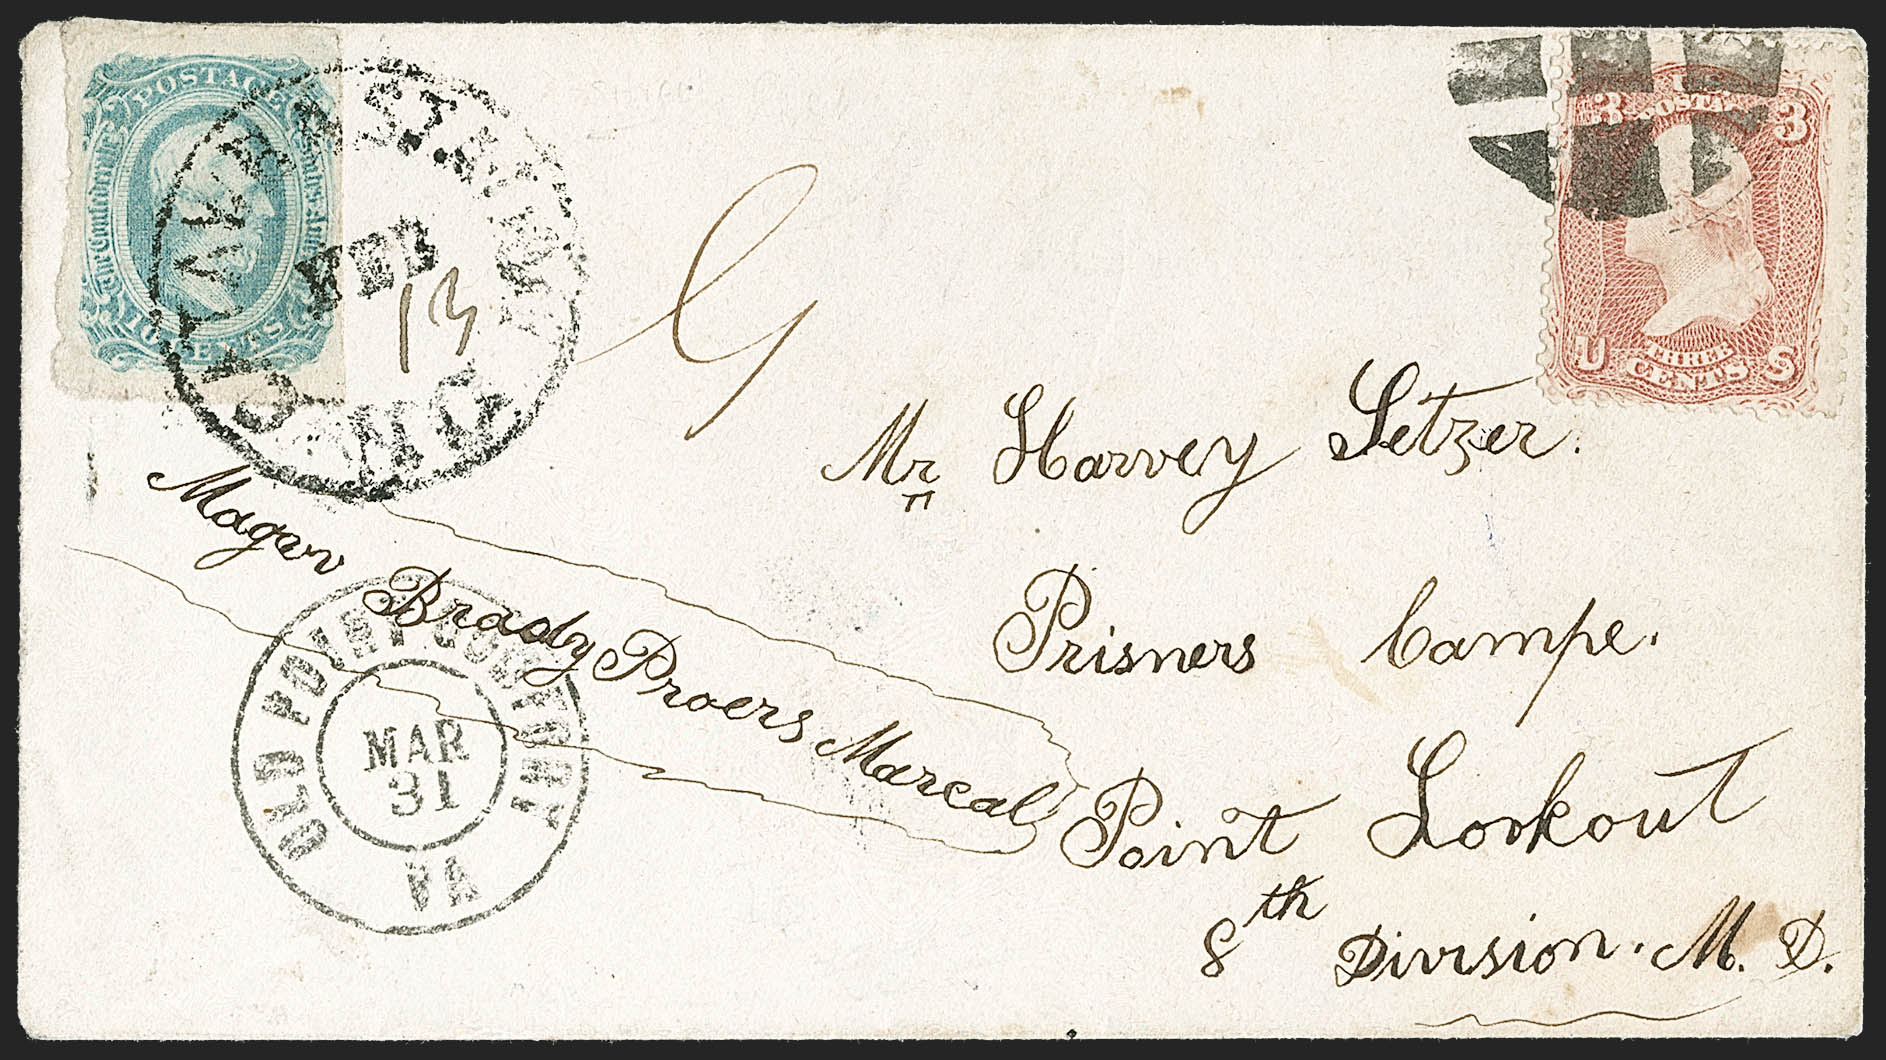 POSTAGE
The Confederate States
10 CENTS
N.C.
FEB
13
3 POSTA 3
U THREE S
CENTS
Mr Harvey Setzer.
Prisners Campe.
Point Lookout
8th Division. M. D.
Magor Brady Proers Marcal
OLD POINT COMFORT
MAR
31
VA